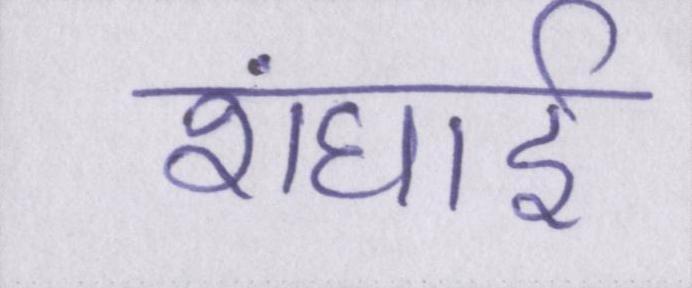 शंघाई